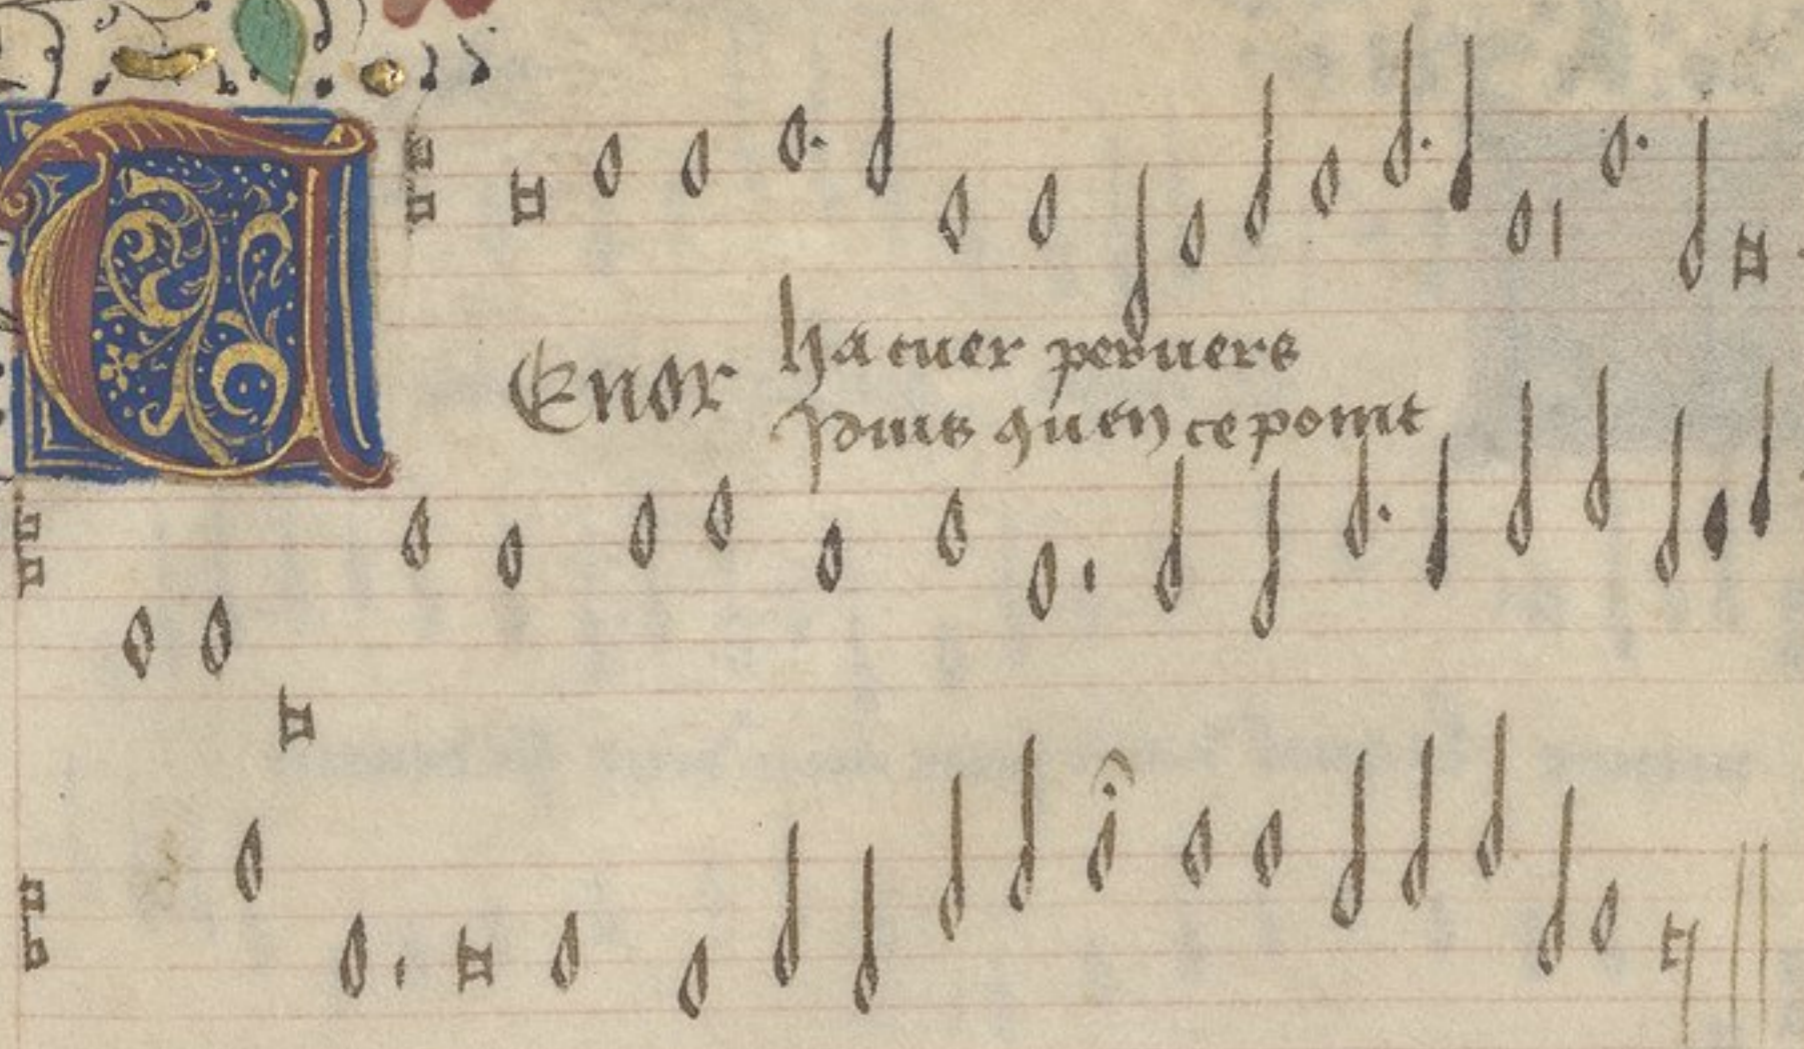 TEnor ha cuer peruers
Puis quen ce point